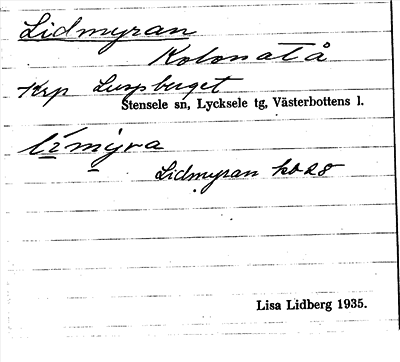 Lidmyran
Kolonat å
Krp Luspberget
Stensele sn, Lycksele tg, Västerbottens l.
límỳra
Lidmyran kb 28
Lisa Lidberg 1935.